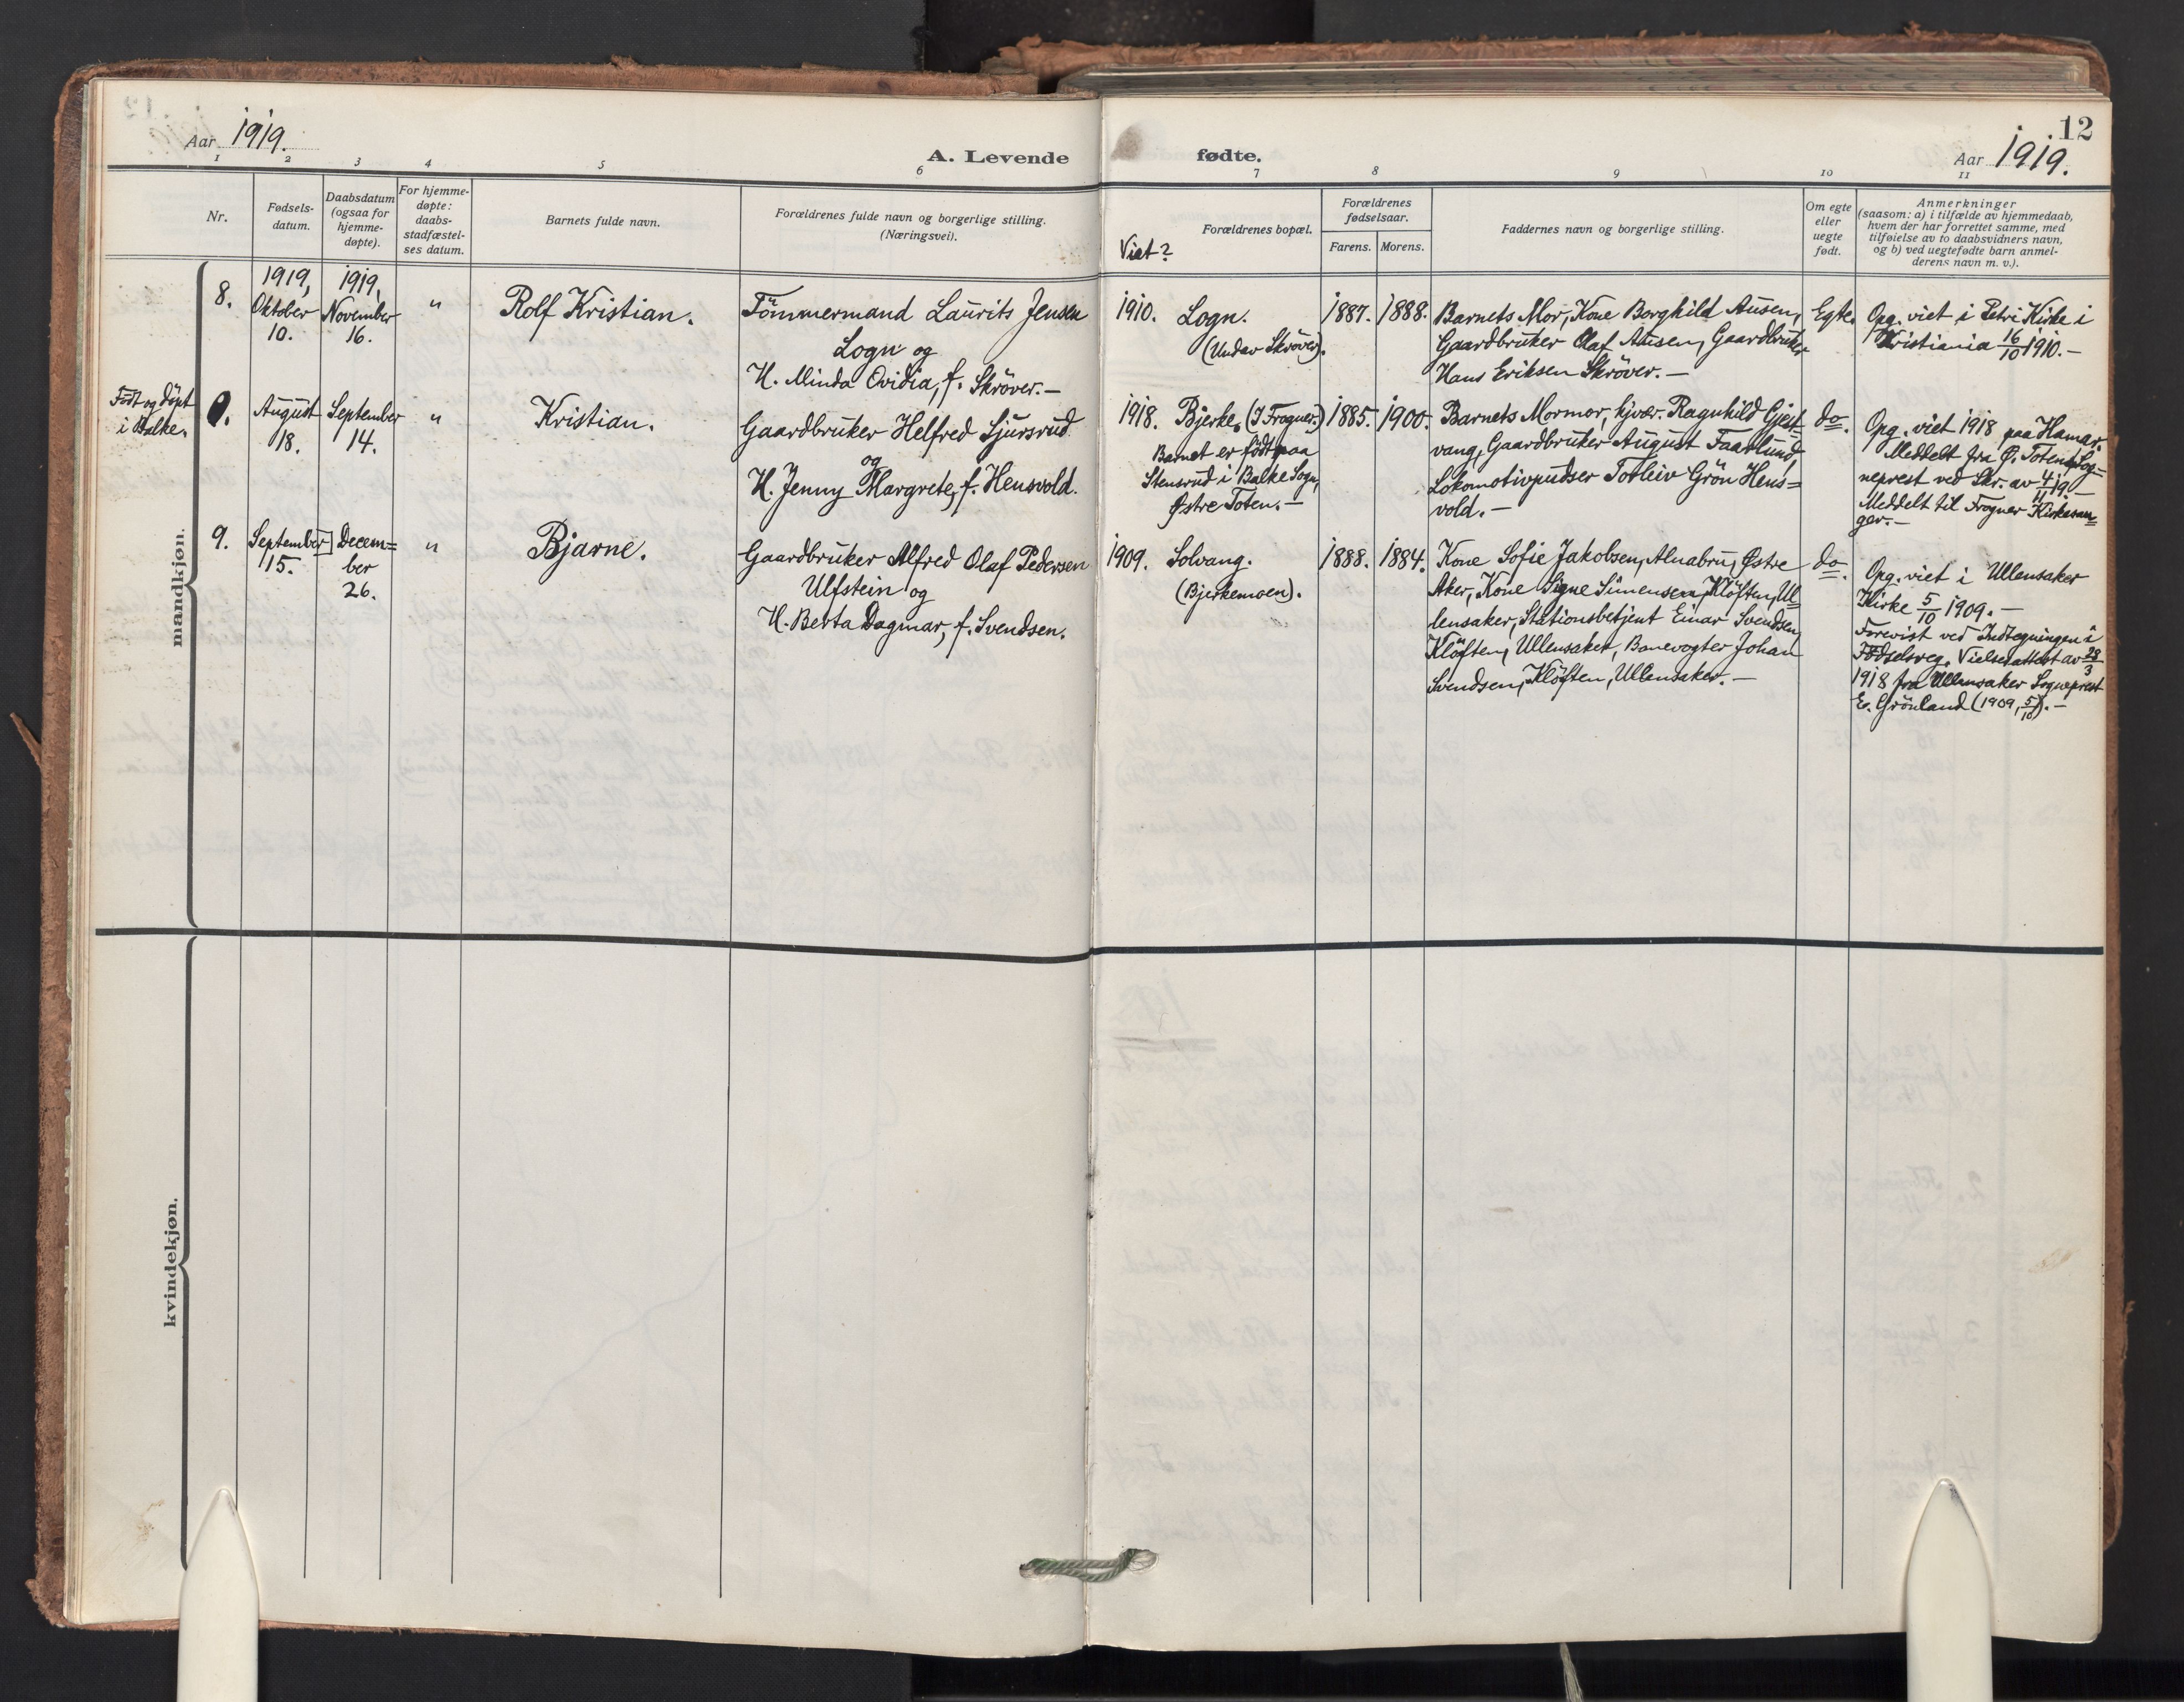 Aar 1919.
A. Levende
fødte.
12
Aar 1919.
1 2 3 4 5 6 7 8 9 10 11
Nr.
Fødsels-
datum.
Daabsdatum
(ogsaa for
hjemme-
døpte).
For hjemme-
døpte:
daabs-
stadfæstel-
ses datum.
Barnets fulde navn.
Forældrenes fulde navn og borgerlige stilling.
(Næringsvei).
Viet?
Forældrenes bopæl.
Forældrenes
fødselsaar.
Farens. Morens.
Faddernes navn og borgerlige stilling.
Om egte
eller
uegte
født.
Anmerkninger
(saasom: a) i tilfælde av hjemmedaab,
hvem der har forrettet samme, med
tilføielse av to daabsvidners navn,
og b) ved uegtefødte barn anmel-
derens navn m. v.).
mandkjøn.
8.
1919,
Oktober
10.
1919,
November
16.
"
Rolf Kristian.
Tömmermand Laurits Jensen
Logn og
H. Minda Ovidia, f. Skröver. —
1910.
Logn.
(Undav Skröver).
1887. 1888.
Barnets Mor, Kone Borghild Ausen,
Gaardbruker Olaf Ausen, Gaardbruker
Hans Eriksen Skröver. —
Egte.
Opg. viet i Petri Kirke i
Kristiania 16/10 1910. —
Födt og döpt
i Balke.
0.
August
18.
September
14.
"
Kristian.
Gaardbruker Helfred Sjursrud
og
H. Jenny Margrete, f. Hensvold.
1918.
Bjerke, (I Frogner.)
Barnet er födt paa
Stensrud i Balke Sogn,
Østre Toten. —
1885. 1900.
Barnets Mormor, kjvær. Ragnhild Gjest-
vang, Gaardbruker August Faarlund,
Lokomotivpudser Torleiv Grön Hens=
vold. —
do.
Opg. viet 1918 paa Hamar.
Meddelt fra Ø. Totens Sog=
neprest ved Skr. av 4/11 19. —
Meddelt til Frogner Kirkesan=
ger. —
9.
September
15.
Decem=
ber
26.
"
Bjarne.
Gaardbruker Alfred Olaf Pedersen
Ulfstein og
H. Berta Dagmar, f. Svendsen.
1909.
Solvang.
(Bjerkemoen).
1888. 1884.
Kone Sofie Jakobsen, Alnabru, Østre
Aker, Kone Signe Simensen, Klöften, Ul=
lensaker, Stationsbetjent Einar Svendsen,
Klöften, Ullensaker, Banevogter Johan
Svendsen, Klöften, Ullensaker. —
do.
Opg. viet i Ullensaker
Kirke 5/10 1909. —
Forevist ved Indtegningen i
Födselsreg. Vielsesattest av 28/3
1918 fra Ullensaker Sogneprest
E. Grönland (1909, 5/10). —
kvindekjøn.